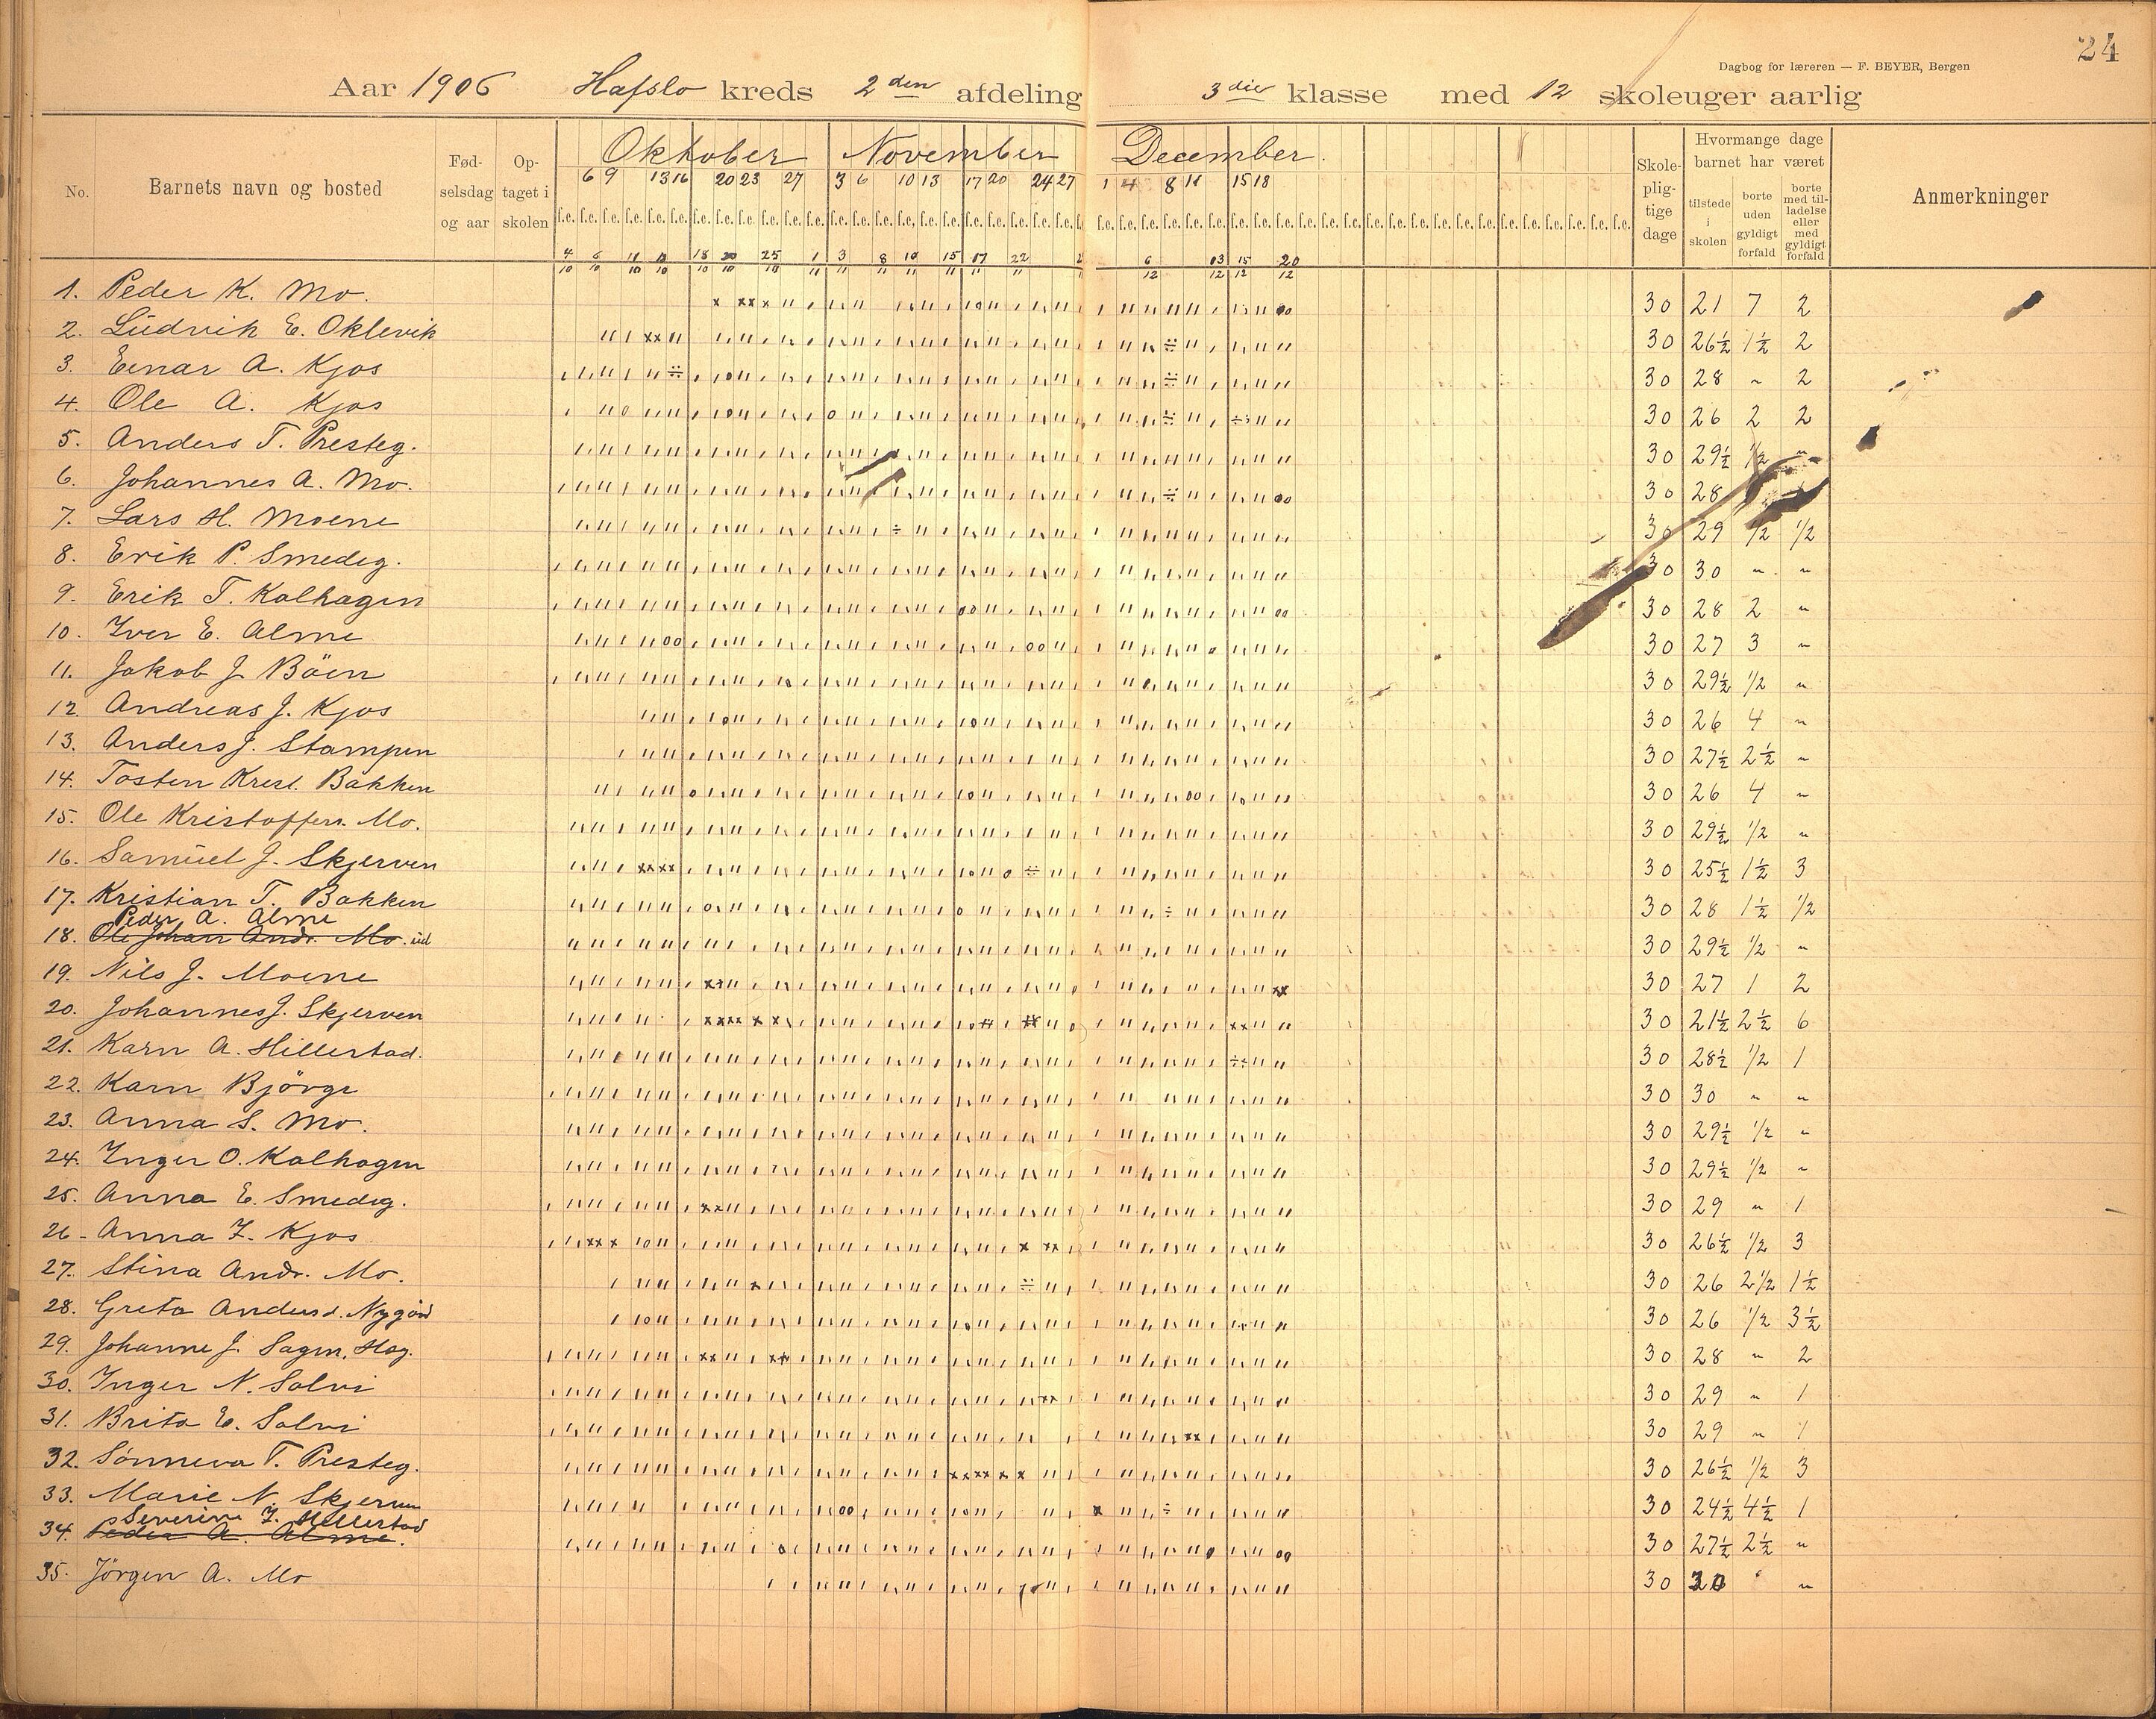 24
Dagbog for læreren — F. BEYER, Bergen
Aar 1906 Hafslo kreds 2den afdeling 3die klasse med 12 skoleuger aarlig
No. Barnets navn og bosted Fød-selsdag og aar Op-taget i skolen Oktober November December. Skole-plig-tige dage Hvormange dage barnet har været tilstede i skolen borte uden gyldigt forfald borte med til-ladelse eller med gyldigt forfald Anmerkninger
6 9 13 16 20 23 27 3 6 10 13 17 20 24 27 1 4 8 11 15 18
1. Peder K. Mo. 30 21 7 2
2. Ludvik E. Oklevik 30 26½ 1½ 2
3. Einar A. Kjos 30 28 " 2
4. Ole A. Kjos 30 26 2 2
5. Anders T. Presteg. 30 29½ ½ "
6. Johannes A. Mo. 30 28
7. Lars H. Moene 30 29 ½ ½
8. Erik P. Smedeg. 30 30 " "
9. Erik T. Kalhagen 30 28 2 "
10. Iver E. Alme 30 27 3 "
11. Jakob J. Böen 30 29½ ½ "
12. Andreas J. Kjos 30 26 4 "
13. Anders J. Stampen 30 27½ 2½ "
14. Tosten Krist. Bakken 30 26 4 "
15. Ole Kristoffers. Mo. 30 29½ ½ "
16. Samuel J. Skjerven 30 25½ 1½ 3
17. Kristian T. Bakken 30 28 1½ ½
Peder A. Alme
18. Ole Johan Andr. Mo. ud 30 29½ ½ "
19. Nils J. Moene 30 27 1 2
20. Johannes J. Skjerven 30 21½ 2½ 6
21. Karn A. Hillestad. 30 28½ ½ 1
22. Karn Björge 30 30 " "
23. Anna S. Mo. 30 29½ ½ "
24. Inger O. Kalhagen 30 29½ ½ "
25. Anna E. Smedeg. 30 29 " 1
26. Anna I. Kjos 30 26½ ½ 3
27. Stina Andr. Mo. 30 26 2½ 1½
28. Greta Andersd. Nygörd 30 26 ½ 3½
29. Johanne J. Sagen, Hag. 30 28 " 2
30. Inger N. Solvi 30 29 " 1
31. Brita E. Solvi 30 29 " 1
32. Sönneva T. Presteg. 30 26½ ½ 3
33. Marie N. Skjerven 30 24½ 4½ 1
Severine I. Hillestad
34. Peder A. Alme. 30 27½ 2½ "
35. Jörgen A. Mo 30 30 "